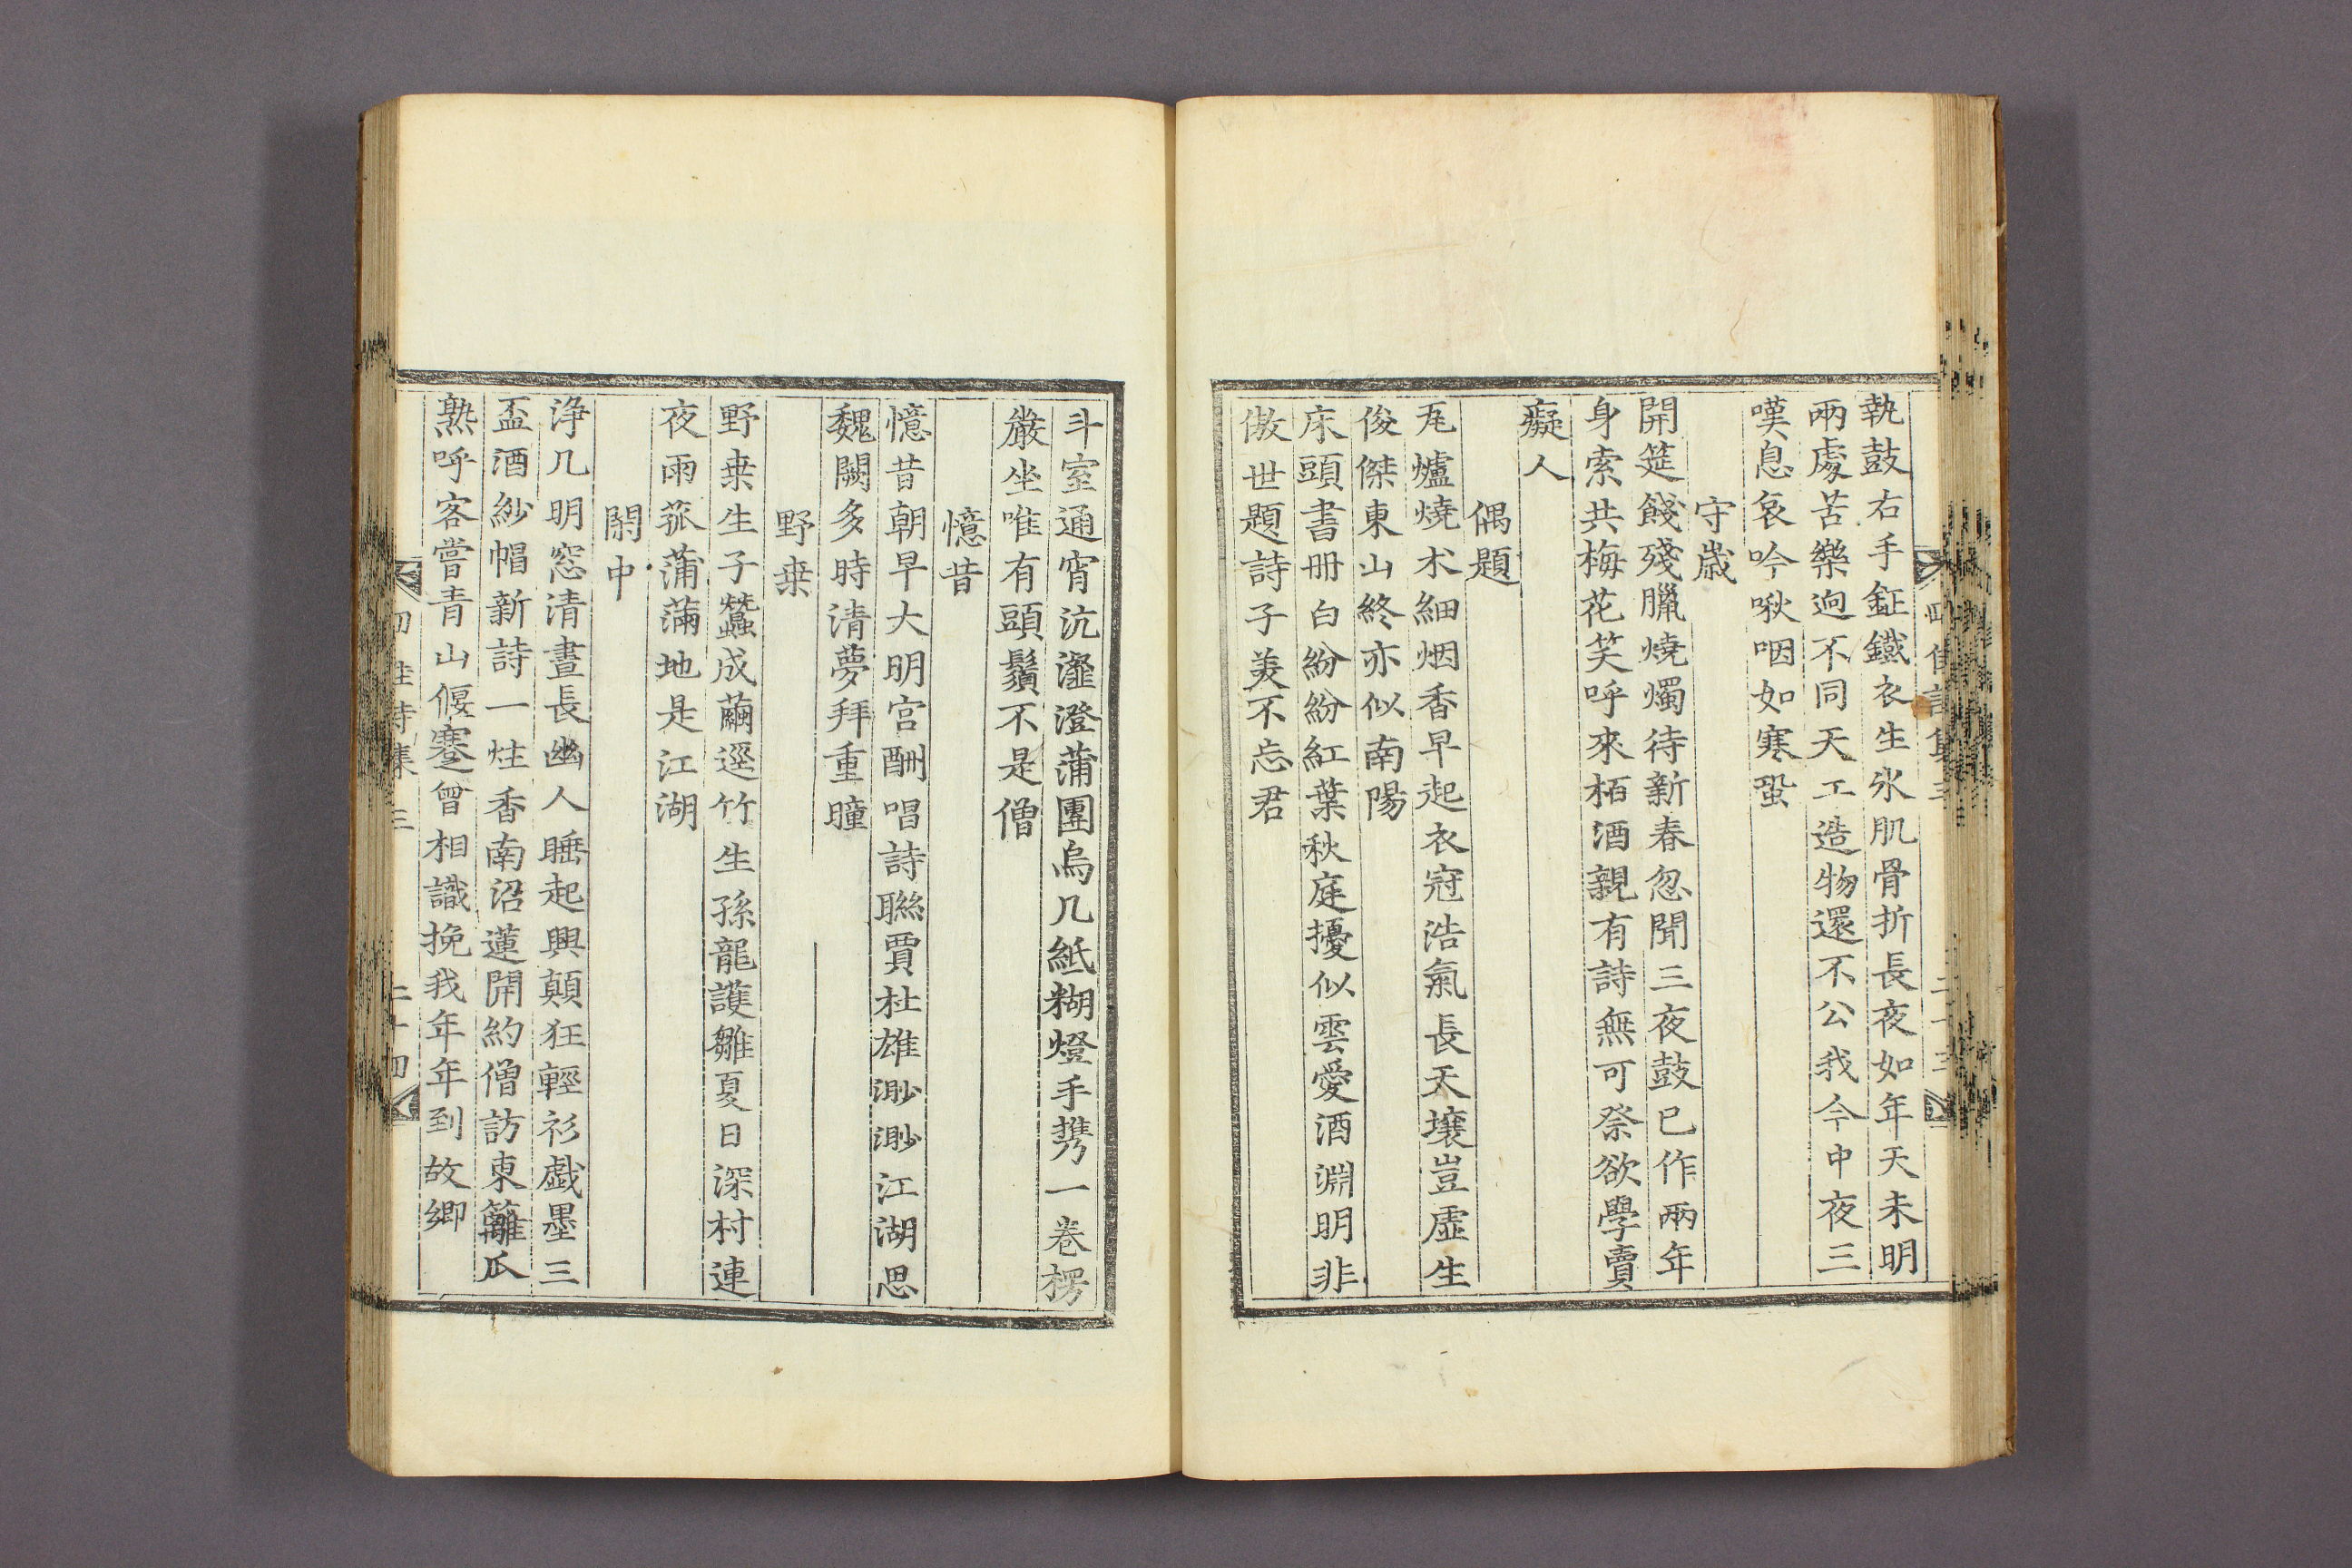 執鼓右手鉦鐵衣生氷肌骨折長夜如年天未明
兩處苦樂逈不同天工造物還不公我今中夜三
嘆息哀吟啾咽如寒蛩
守歳
開筵餞殘臘燒燭待新春忽聞三夜鼓已作兩年
身索共梅花笑呼來栢酒親有詩無可祭欲學賣
癡人
偶題
瓦爐燒朮細烟香早起衣冠浩氣長天壤豈虛生
俊傑東山終亦似南陽
床頭書冊白紛紛紅葉秋庭擾似雲愛酒淵明非
傲世題詩子美不忘君
斗室通宵沆瀣澄蒲團烏几紙糊燈手携一卷楞
嚴坐唯有頭鬚不是僧
憶昔
憶昔朝早大明宮酬唱詩聯賈杜雄渺渺江湖思
魏闕多時清夢拜重瞳
野桒
野桒生子蠶成繭逕竹生孫龍護雛夏日深村連
夜雨菰蒲蒲地是江湖
閑中
淨几明窓清晝長幽人睡起興顛狂輕衫戱墨三
盃酒紗帽新詩一炷香南沼蓮開約僧訪東籬瓜
熟呼客嘗青山偃蹇曾相識挽我年年到故鄉